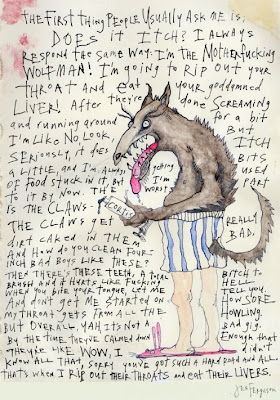 THE FIRST THING PEOPLE USUALLY ASK ME IS,
DOES IT ITCH? I ALWAYS
RESPOND THE SAME WAY: I'M THE MOTHERFUCKING
WOLFMAN! I'M GOING TO RIP OUT YOUR
THROAT AND EAT YOUR GODDAMNED
LIVER! AFTER THEY'RE DONE SCREAMING
AND RUNNING AROUND FOR A BIT
I'M LIKE NO, LOOK, BUT
SERIOUSLY, IT DOES ITCH
A LITTLE, AND I'M ALWAYS GETTING BITS
OF FOOD STUCK IN IT, BUT I'M USED
TO IT BY NOW. WORST PART
IS THE CLAWS-
THE CLAWS GET REALLY
DIRT CAKED IN THEM BAD,
AND HOW DO YOU CLEAN FOUR-
INCH BAD BOYS LIKE THESE?
THEN THERE'S THESE TEETH, A REAL BITCH TO
BRUSH AND IT HURTS LIKE FUCKING HELL
WHEN YOU BITE YOUR TONGUE, LET ME TELL YOU,
AND DON'T GET ME STARTED ON HOW SORE
MY THROAT GETS FROM ALL THE HOWLING.
BUT OVERALL, YAH, IT'S NOT A BAD GIG.
BY THE TIME THEY'VE CALMED DOWN ENOUGH THAT
THEY'RE LIKE WOW, I DIDN'T
KNOW ALL THAT, SORRY YOU'VE GOT SUCH A HARD ROAD AND ALL.
THAT'S WHEN I RIP OUT THEIR THROATS AND EAT THEIR LIVERS.
Jen Ferguson